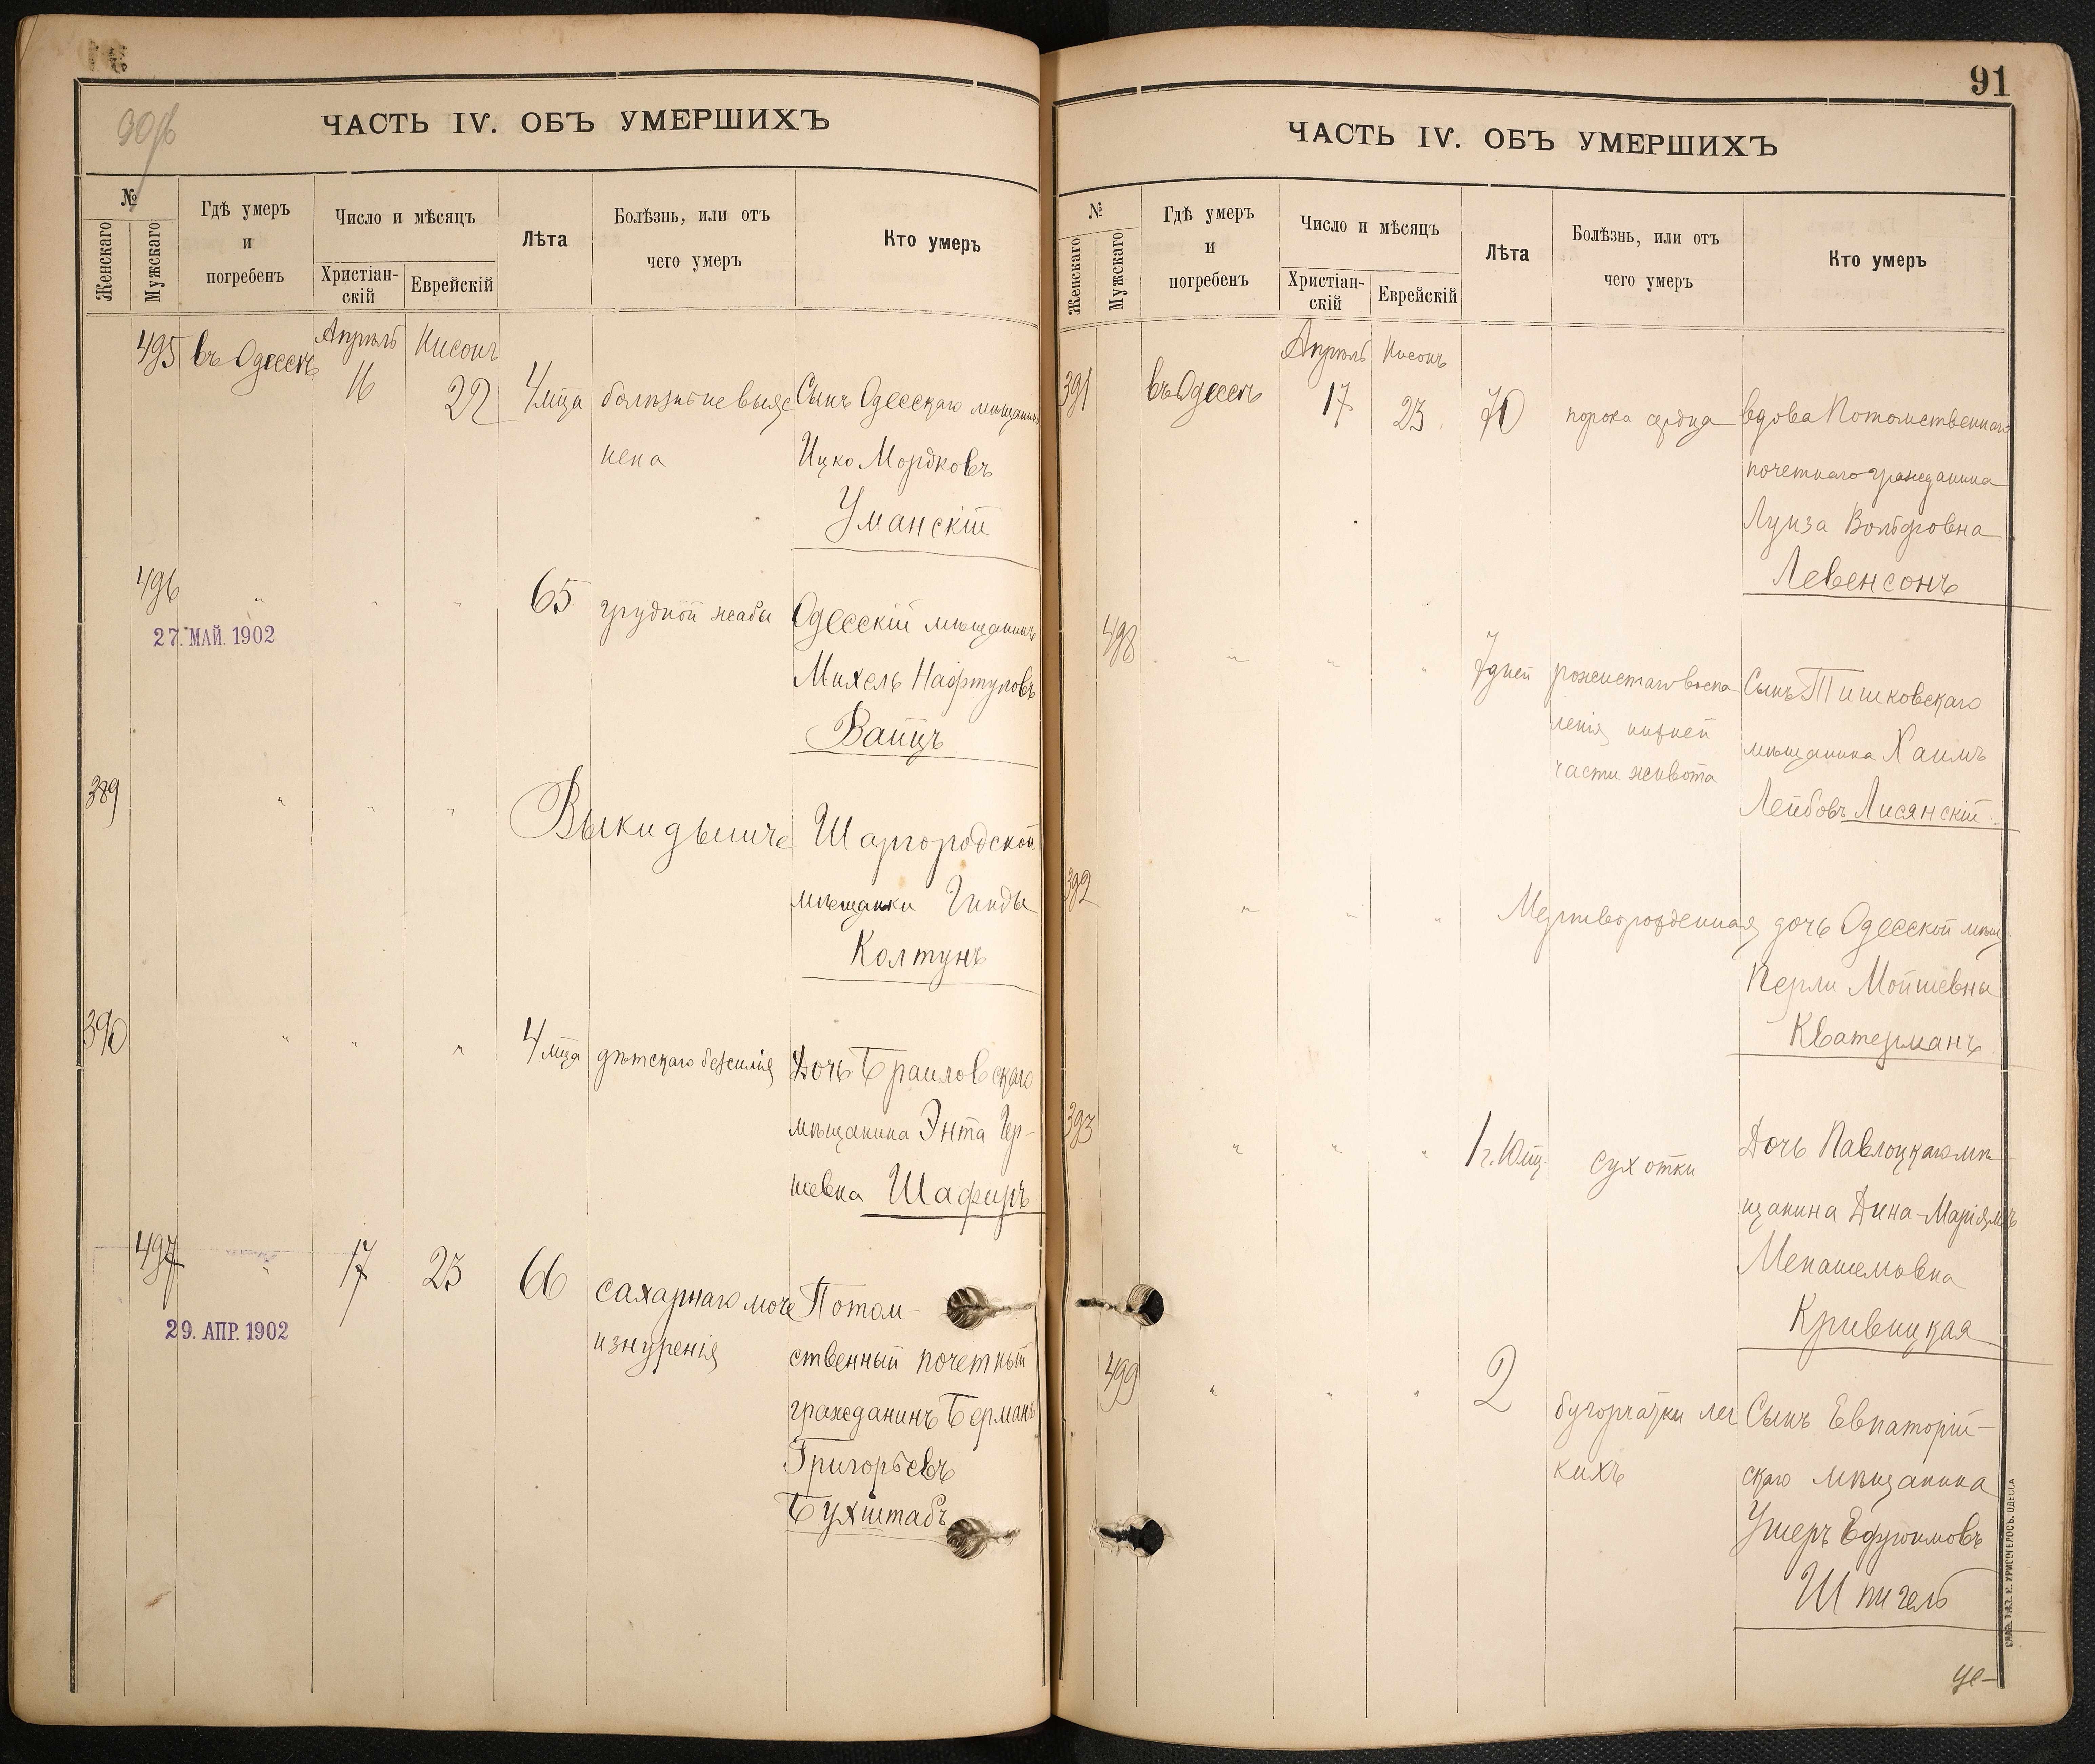 90/b
ЧАСТЬ IV. ОБЪ УМЕРШИХЪ
№
Женскаго
Мужскаго
Гдѣ умеръ
и
погребенъ
Число и мѣсяцъ
Христіан-
скій
Еврейскій
Лѣта
Болѣзнь, или отъ
чего умеръ
Кто умеръ
495 въ Одессѣ Апрѣль Нисонъ
16 22 4 мца болѣзнь не выяс Сынъ Одесскаго мѣщанина
нена Ицко Мордковъ
Уманскій
496 " " " 65 грудной жабы Одесскій мѣщанинъ
27. МАЙ. 1902
Михель Нафтуловъ
Вайцъ
389 " " " Выкидышъ Шаргородской
мѣщанки Гинды
Колтунъ
390 " " " 4 мца дѣтскаго безсилія Дочь Браиловскаго
мѣщанина Энта Гер-
шевна Шафиръ
497 " 17 23 66 сахарнаго моче Потом-
29. АПР. 1902
изнуренія ственный почетный
гражданинъ Берманъ
Григорьевъ
Бухштабъ
91
ЧАСТЬ IV. ОБЪ УМЕРШИХЪ
№
Женскаго
Мужскаго
Гдѣ умеръ
и
погребенъ
Число и мѣсяцъ
Христіан-
скій
Еврейскій
Лѣта
Болѣзнь, или отъ
чего умеръ
Кто умеръ
Апрѣль Нисонъ
391 въ Одессѣ 17 23 70 порока сердца вдова Потомственнаго
почетнаго гражданина
Луиза Вольфовна
Левенсонъ
498 " " " 7 дней рожистаго воспа Сынъ Тишковскаго
ленія нижней мѣщанина Хаимъ
части живота Лейбовъ Лисянскій
392 " " " Мертворожденная дочь Одесской мѣщ.
Перли Мойшевны
Кватерманъ
393 " " " 1 г. 10 мц. сухотки Дочь Павлоцкаго мѣ
щанина Дина-Маріямъ
Менашемовна
Кривицкая
499 " " " 2 бугорчатки лег Сынъ Евпаторій-
кихъ скаго мѣщанина
Ушеръ Ефроимовъ
Шпигель